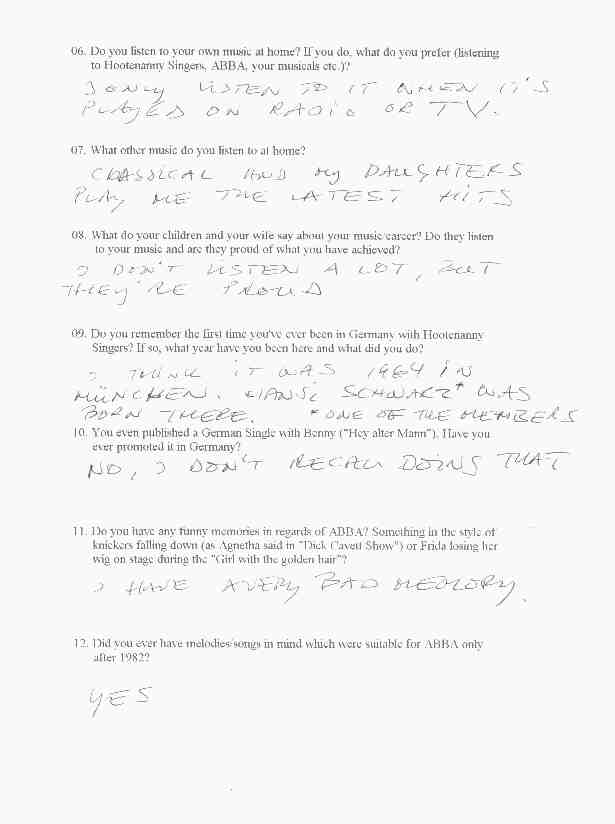 06. Do you listen to your own music at home? If you do, what do you prefer (listening
to Hootenanny Singers, ABBA, your musicals etc.)?
I ONLY LISTEN TO IT WHEN IT'S
PLAYED ON RADIO OR TV.
07. What other music do you listen to at home?
CLASSICAL AND MY DAUGHTERS
PLAY ME THE LATEST HITS
08. What do your children and your wife say about your music/career? Do they listen
to your music and are they proud of what you have achieved?
I DON'T LISTEN A LOT, BUT
THEY'RE PROUD
09. Do you remember the first time you've ever been in Germany with Hootenanny
Singers? If so, what year have you been here and what did you do?
I THINK IT WAS 1964 IN
MÜNCHEN. HANSI SCHWARZ* WAS
BORN THERE. *ONE OF THE MEMBERS
10. You even published a German Single with Benny ("Hey alter Mann"). Have you
ever promoted it in Germany?
NO, I DON'T RECALL DOING THAT
11. Do you have any funny memories in regards of ABBA? Something in the style of
knickers falling down (as Agnetha said in "Dick Cavett Show") or Frida losing her
wig on stage during the "Girl with the golden hair"?
I HAVE A VERY BAD MEMORY.
12. Did you ever have melodies/songs in mind which were suitable for ABBA only
after 1982?
YES